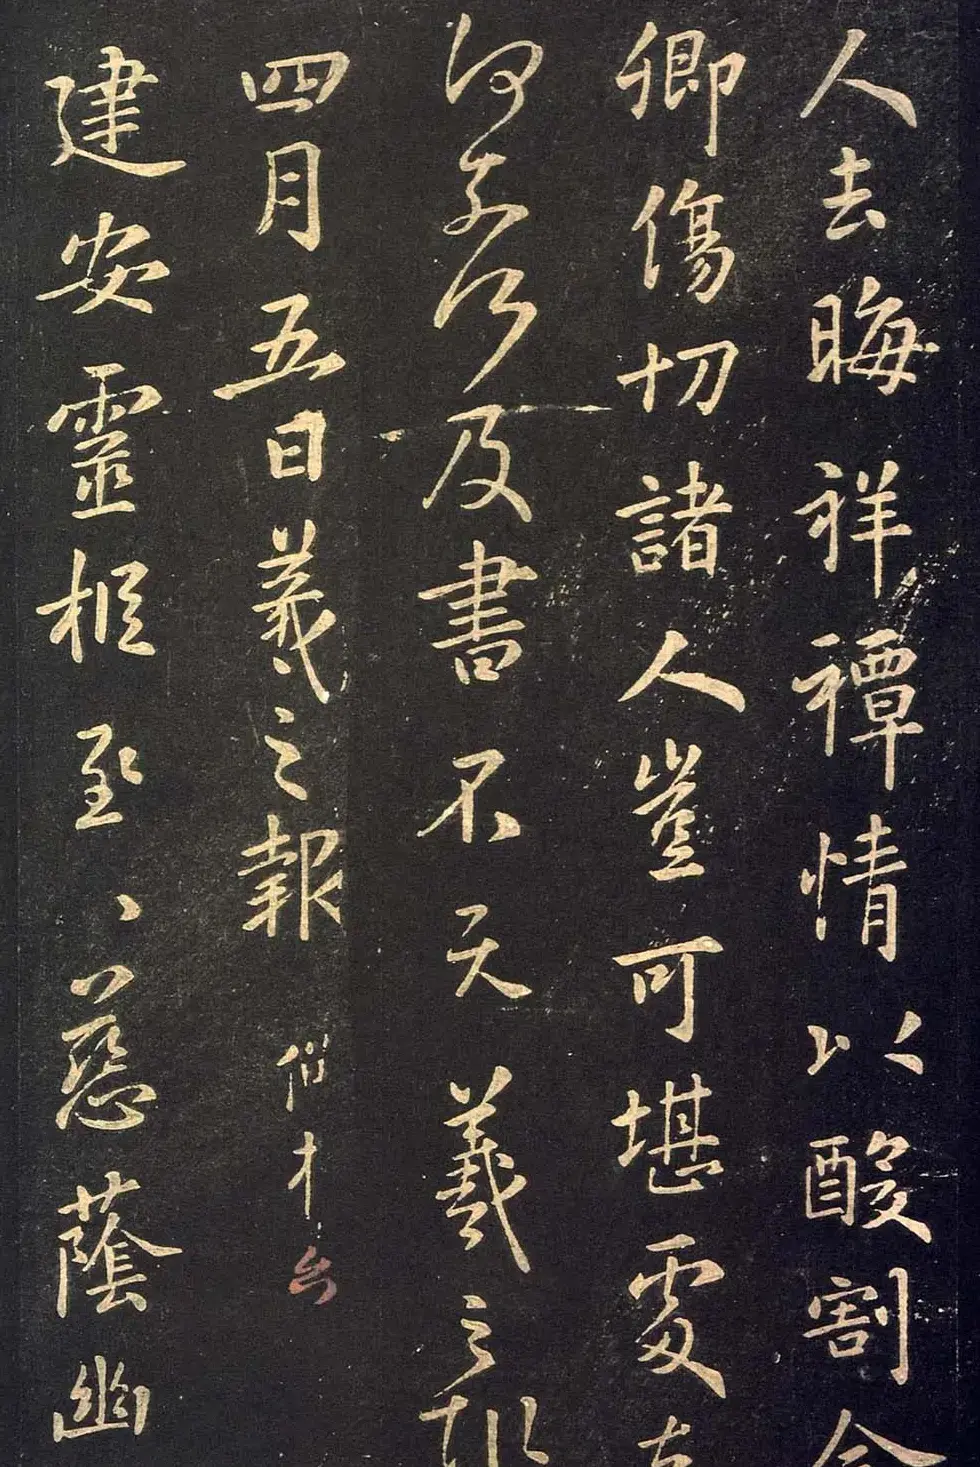 人去晦祥禫情以酸割念
卿傷切諸人豈可堪處奈
何奈何及書不羲之報
四月五日羲之報
建安靈柩至慈蔭幽